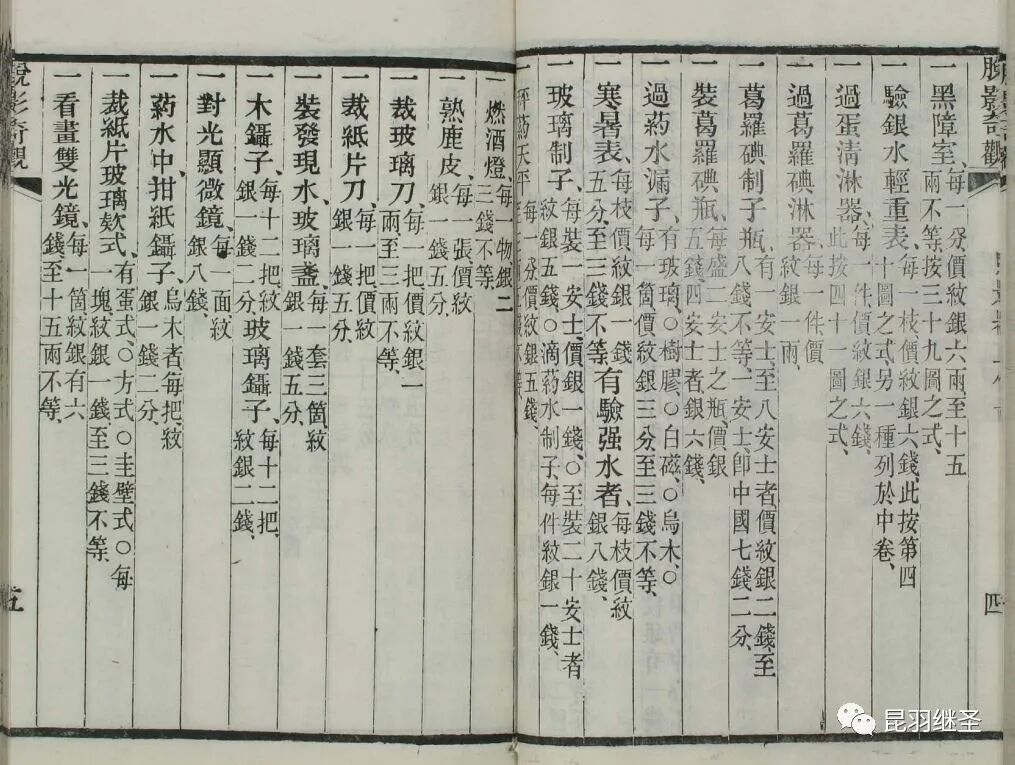 脫影奇觀
四
一黑障室、每一分價紋銀六兩至十五兩不等、按三十九圖之式、
一驗銀水輕重表、每一枝價紋銀六錢、此按第四十圖之式、另一種列於中卷、
一過蛋清淋器、每一件價紋銀六錢、此按四十一圖之式、
一過葛羅碘淋器、每一件價紋銀一兩、
一葛羅碘制子瓶、有一安士、至八安士者、價紋銀二錢至八錢不等、一安士、卽中國七錢二分、
一裝葛羅碘瓶、每盛二安士之瓶、價銀五錢、四安士者銀六錢、
一過葯水漏子、有玻璃、○樹膠、○白磁、○烏木、○每一箇價紋銀三分至三錢不等、
一寒暑表、每枝價紋銀一錢五分至三錢不等、有驗强水者、每枝價紋銀八錢、
一玻璃制子、每裝一安士、價銀一錢、○至裝二十安士者紋銀五錢、○滴葯水制子、每件紋銀一錢、
一秤葯天平、每一分價紋銀五錢、
一燃酒燈、每一物銀二三錢不等、
一熟鹿皮、每一張價紋銀一錢五分、
一裁玻璃刀、每一把價紋銀一兩至三兩不等、
一裁紙片刀、每一把價紋銀一錢五分、
一裝發現水玻璃盞、每一套三箇、紋銀一錢五分、
一木鑷子、每十二把、紋銀一錢二分、玻璃鑷子、每十二把、紋銀二錢、
一對光顯微鏡、每一面、紋銀八錢、
一葯水中、拑紙鑷子、烏木者每把、紋銀一錢二分、
一裁紙片玻璃欵式、有蛋式、○方式、○圭壁式、○每一塊紋銀一錢至三錢不等、
一看畫雙光鏡、每一箇、紋銀有六錢至十五兩不等、
脫影奇觀
五
昆羽继圣